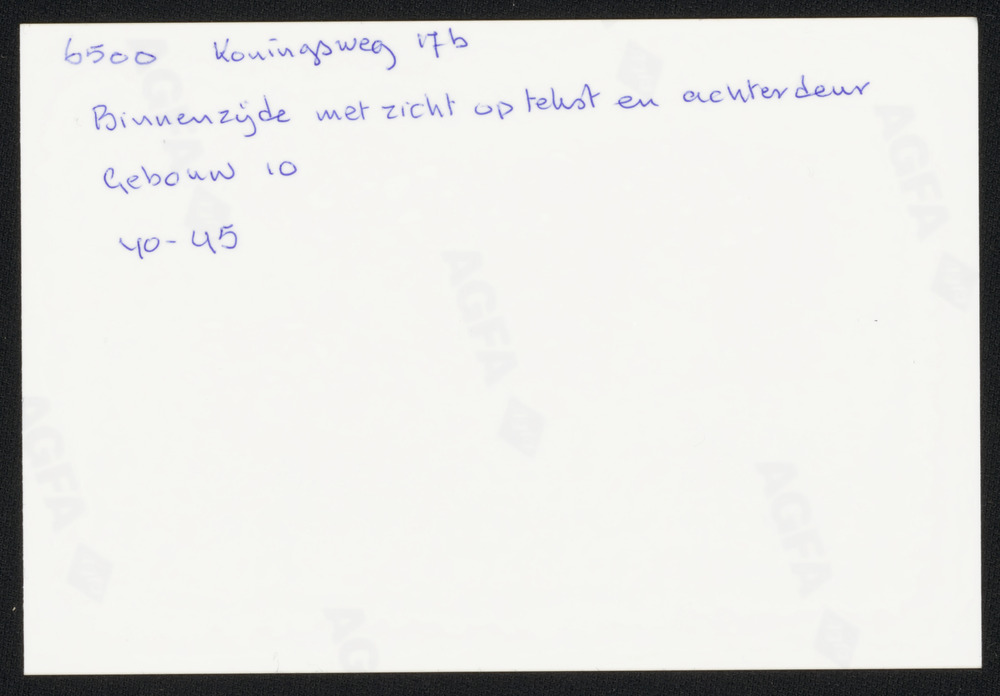 6500 Koningsweg 17b
Binnenzijde met zicht op tekst en achterdeur
Gebouw 10
40-45
AGFA
AGFA
AGFA
AGFA
AGFA
AGFA